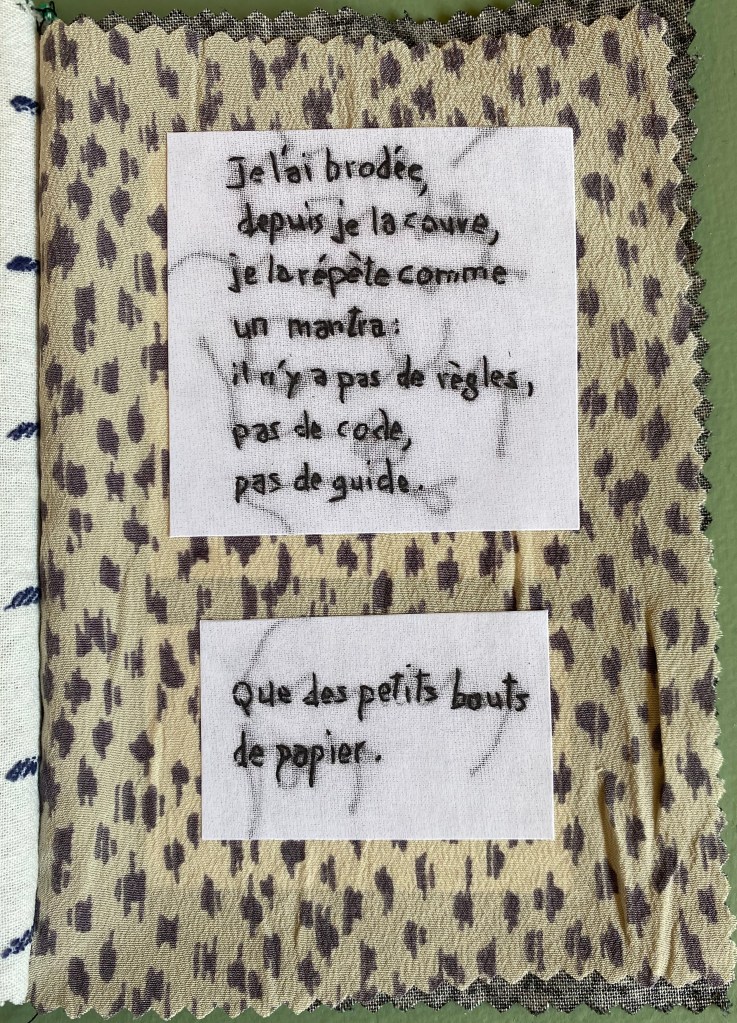 Je l'ai brodée,
depuis je la couve,
je la répète comme
un mantra:
il n'y a pas de règles,
pas de code,
pas de guide.
Que des petits bouts
de papier.